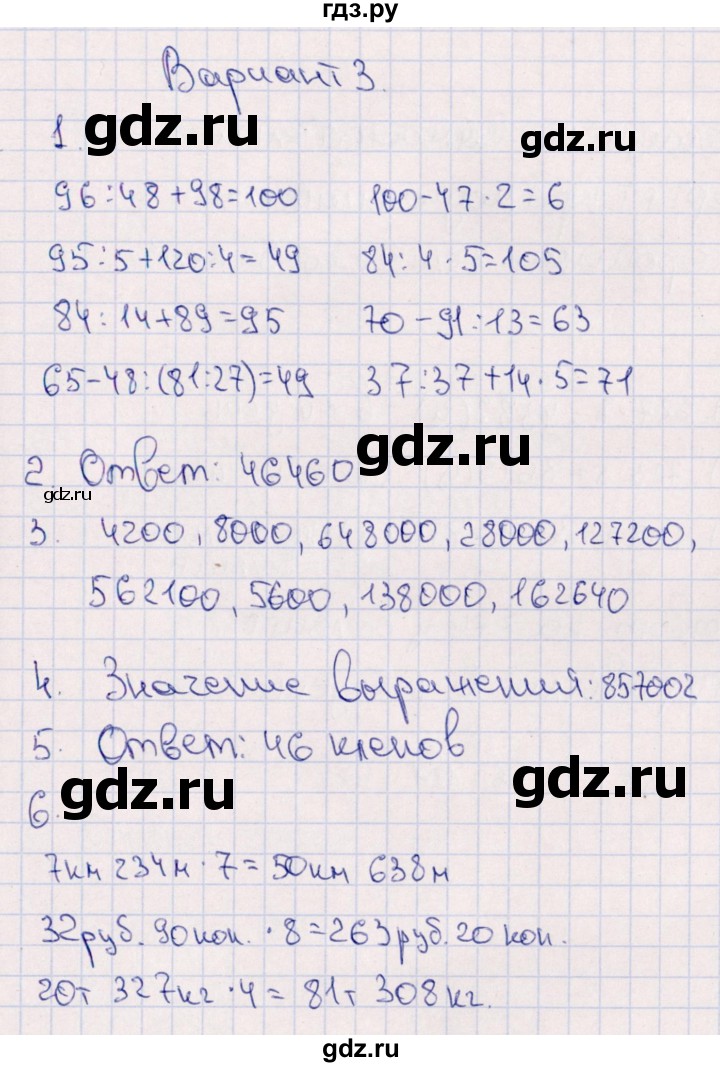 гдз.ру
Вариант 3.
1. gdz.ru gdz.ru
96:48+98=100 100-47·2=6
95:5+120:4=49 84:4·5=105
84:14+89=95 70-91:13=63
65-48:(81:27)=49 37:37+14·5=71
gdz.ru
2. Ответ: 46460
gdz.ru
3. 4200, 8000, 648000, 28000, 127200,
562100, 5600, 138000, 162640
4. Значение выражения: 857002
5. Ответ: 46 кленов
6. gdz.ru gdz.ru
7км 234м·7=50км 638м
32руб. 90коп.·8=263руб. 20коп.
20т 327кг·4=81т 308кг.
gdz.ru